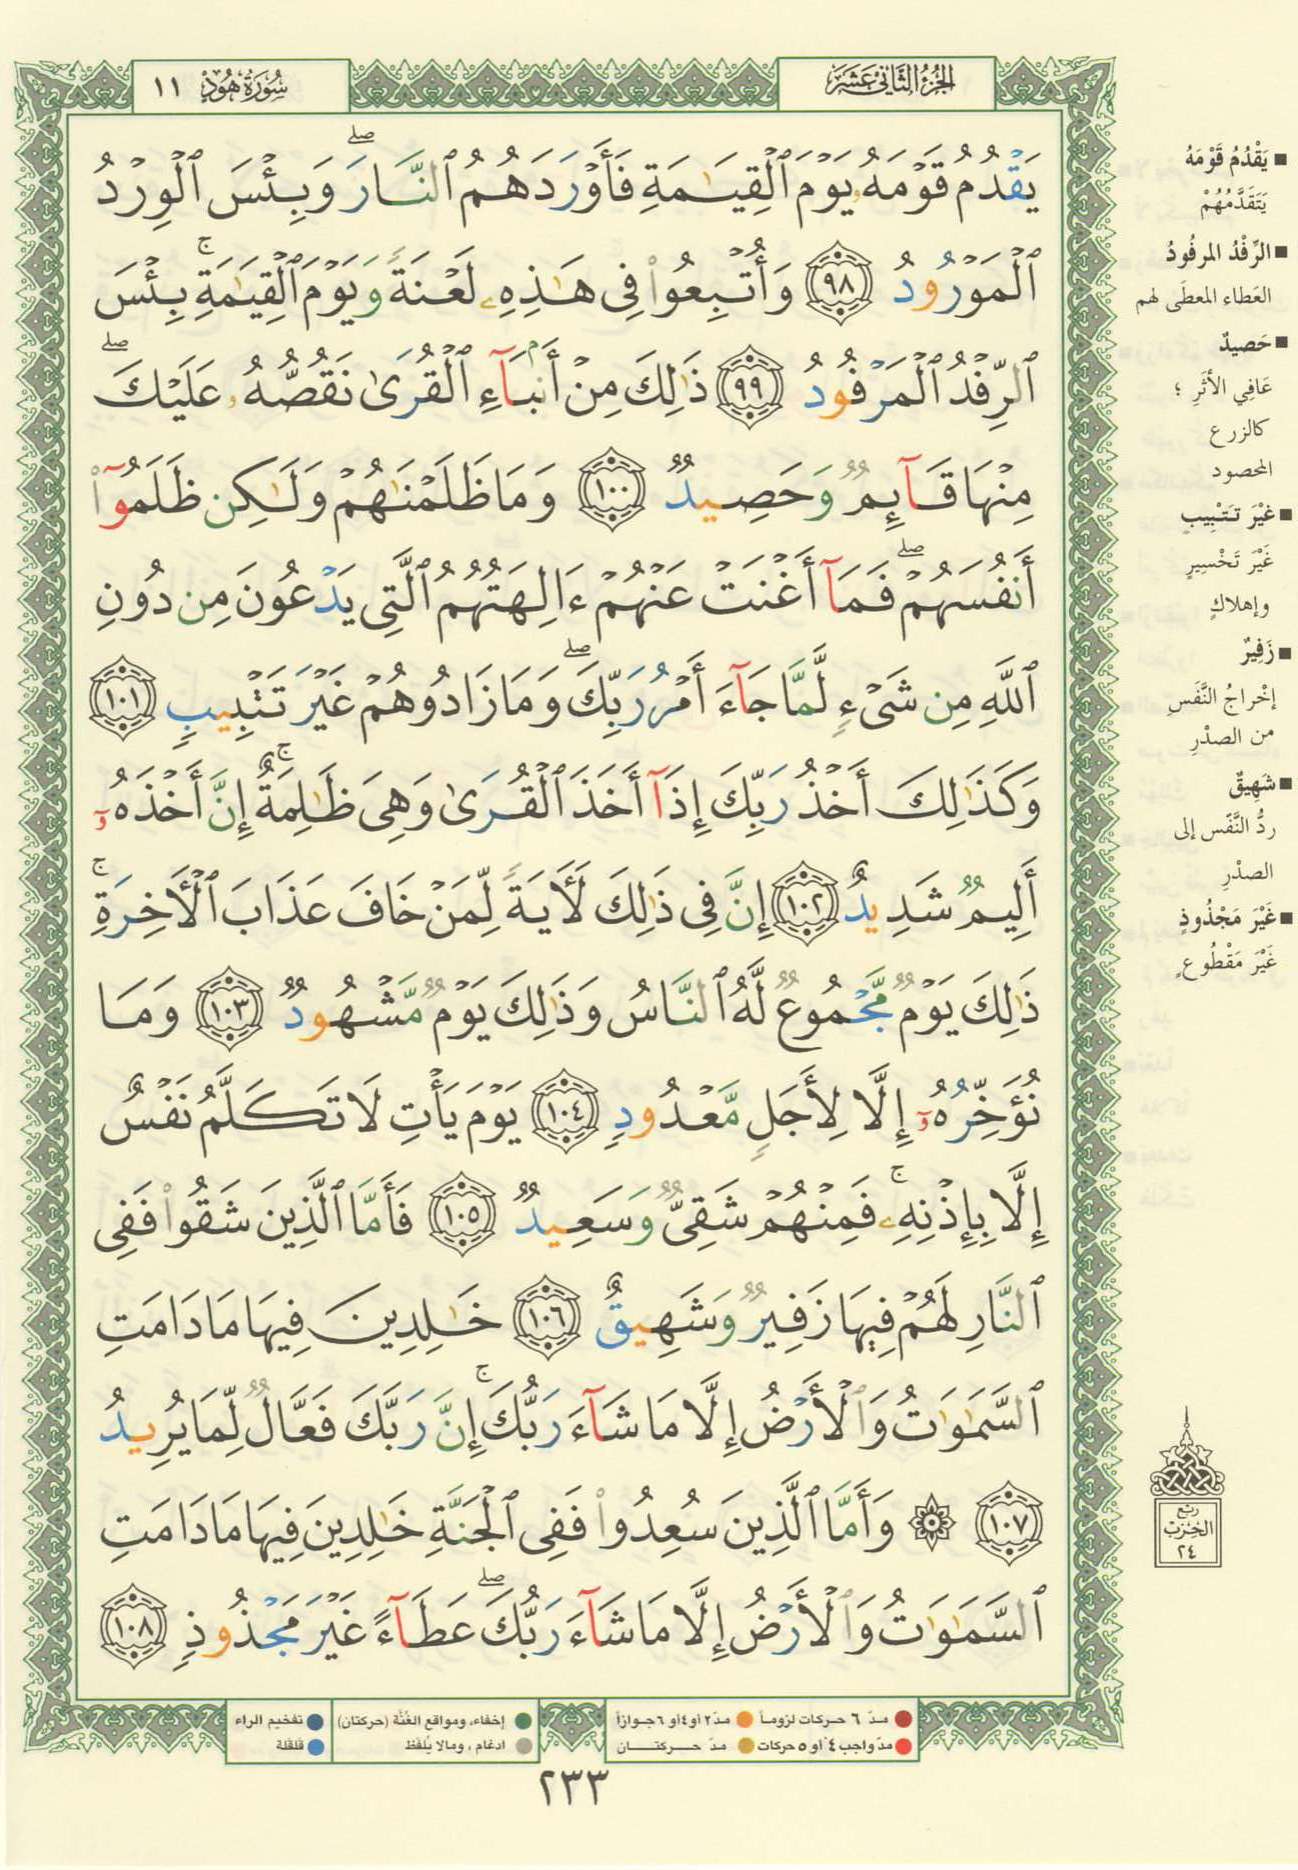 سُورَةُ هُودٍ ١١
الجُزْءُ الثَّانِي عَشَرَ
يَقْدُمُ قَوْمَهُۥ يَوْمَ ٱلْقِيَـٰمَةِ فَأَوْرَدَهُمُ ٱلنَّارَ ۖ وَبِئْسَ ٱلْوِرْدُ
ٱلْمَوْرُودُ ٩٨ وَأُتْبِعُوا۟ فِى هَـٰذِهِۦ لَعْنَةً وَيَوْمَ ٱلْقِيَـٰمَةِ ۚ بِئْسَ
ٱلرِّفْدُ ٱلْمَرْفُودُ ٩٩ ذَٰلِكَ مِنْ أَنۢبَآءِ ٱلْقُرَىٰ نَقُصُّهُۥ عَلَيْكَ ۖ
مِنْهَا قَآئِمٌ وَحَصِيدٌ ١٠٠ وَمَا ظَلَمْنَـٰهُمْ وَلَـٰكِن ظَلَمُوٓا۟
أَنفُسَهُمْ ۖ فَمَآ أَغْنَتْ عَنْهُمْ ءَالِهَتُهُمُ ٱلَّتِى يَدْعُونَ مِن دُونِ
ٱللَّهِ مِن شَىْءٍ لَّمَّا جَآءَ أَمْرُ رَبِّكَ ۖ وَمَا زَادُوهُمْ غَيْرَ تَتْبِيبٍ ١٠١
وَكَذَٰلِكَ أَخْذُ رَبِّكَ إِذَآ أَخَذَ ٱلْقُرَىٰ وَهِىَ ظَـٰلِمَةٌ ۚ إِنَّ أَخْذَهُۥٓ
أَلِيمٌ شَدِيدٌ ١٠٢ إِنَّ فِى ذَٰلِكَ لَـَٔايَةً لِّمَنْ خَافَ عَذَابَ ٱلْـَٔاخِرَةِ ۚ
ذَٰلِكَ يَوْمٌ مَّجْمُوعٌ لَّهُ ٱلنَّاسُ وَذَٰلِكَ يَوْمٌ مَّشْهُودٌ ١٠٣ وَمَا
نُؤَخِّرُهُۥٓ إِلَّا لِأَجَلٍ مَّعْدُودٍ ١٠٤ يَوْمَ يَأْتِ لَا تَكَلَّمُ نَفْسٌ
إِلَّا بِإِذْنِهِۦ ۚ فَمِنْهُمْ شَقِىٌّ وَسَعِيدٌ ١٠٥ فَأَمَّا ٱلَّذِينَ شَقُوا۟ فَفِى
ٱلنَّارِ لَهُمْ فِيهَا زَفِيرٌ وَشَهِيقٌ ١٠٦ خَـٰلِدِينَ فِيهَا مَا دَامَتِ
ٱلسَّمَـٰوَٰتُ وَٱلْأَرْضُ إِلَّا مَا شَآءَ رَبُّكَ ۚ إِنَّ رَبَّكَ فَعَّالٌ لِّمَا يُرِيدُ
١٠٧ ۞ وَأَمَّا ٱلَّذِينَ سُعِدُوا۟ فَفِى ٱلْجَنَّةِ خَـٰلِدِينَ فِيهَا مَا دَامَتِ
ٱلسَّمَـٰوَٰتُ وَٱلْأَرْضُ إِلَّا مَا شَآءَ رَبُّكَ ۖ عَطَآءً غَيْرَ مَجْذُوذٍ ١٠٨
■ يَقْدُمُ قَوْمَهُ
يَتَقَدَّمُهُمْ
■ الرِّفْدُ المرفُودُ
العَطاء المعطَى لهم
■ حَصيدٌ
عَافِي الأثَرِ ؛
كالزرع
المحصود
■ غيْرَ تَتْبِيبٍ
غَيْرَ تَخْسِيرٍ
وإهلاكٍ
■ زَفِيرٌ
إخْراجُ النَّفَسِ
من الصدْرِ
■ شَهِيقٌ
ردُّ النَّفَس إلى
الصدْرِ
■ غَيْرَ مَجْذُوذٍ
غَيْرَ مَقْطُوعٍ
ربع
الحزب
٢٤
مدّ ٦ حركات لزوماً ● مدّ ٢ أو ٤ أو ٦ جوازاً
مدّ واجب ٤ أو ٥ حركات ● مدّ حركتان
إخفاء، ومواقع الغُنَّة (حركتان) ● تفخيم الراء
ادغام ، ومالا يُلفَظ ● قلقلة
٢٣٣